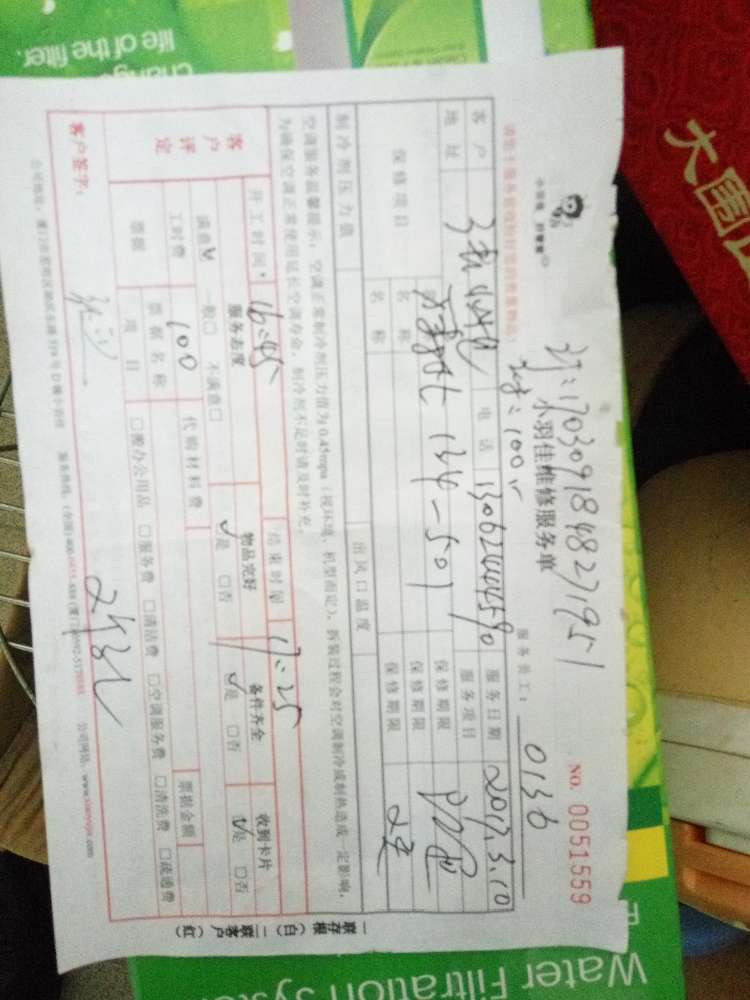 小羽佳维修服务单
NO. 0051559
订:1703091848271951
单:100
服务员工: 0136
请您于服务验收时付清消费及物品!
客户
电话 13062444590
服务日期 2017.3.10
地址
134-501
服务项目
保修项目
名称
保修期限
名称
保修期限
制冷剂压力值
出风口温度
空调服务温馨提示:空调正常制冷剂压力值为0.45mpa(视环境、机型而定),拆装过程会对空调制冷或制热造成一定影响,
为确保空调正常使用延长空调寿命,制冷剂不足时请及时补充。
开工时间 16:45
结束时间 17:25
客户评定
服务态度
物品完好
备件齐全
收到卡片
满意☑ 一般□ 不满意□
☑是 □否
☑是 □否
☑是 □否
工时费 100
代购材料费
票据
票据名称
票据金额
项目
□搬办公用品 □服务费 □清洁费 □空调服务费 □清洗费 □疏通费
客户签字:
公司网站:www.xiaoyujia.com
一联存根(白) 二联客户(红)
Water Filtration Syste
life of the filter.
大围山